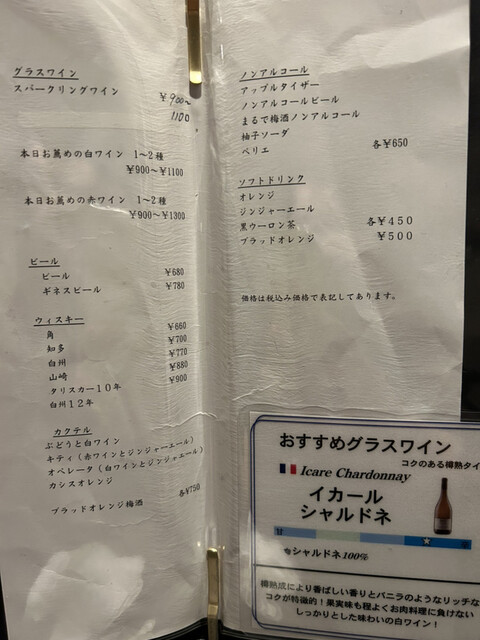 グラスワイン
スパークリングワイン
¥900〜
1100
本日お薦めの白ワイン 1〜2種
¥900〜¥1100
本日お薦めの赤ワイン 1〜2種
¥900〜¥1300
ビール
ビール ¥680
ギネスビール ¥780
ウィスキー
角 ¥660
知多 ¥700
白州 ¥770
山崎 ¥880
タリスカー10年 ¥900
白州12年
カクテル
ぶどうと白ワイン
キティ(赤ワインとジンジャーエール)
オペレータ(白ワインとジンジャーエール)
カシスオレンジ
各¥750
ブラッドオレンジ梅酒
ノンアルコール
アップルタイザー
ノンアルコールビール
まるで梅酒ノンアルコール
柚子ソーダ
ペリエ 各¥650
ソフトドリンク
オレンジ
ジンジャーエール
黒ウーロン茶 各¥450
ブラッドオレンジ ¥500
価格は税込み価格で表記してあります。
おすすめグラスワイン
コクのある樽熟タイ
Icare Chardonnay
イカール
シャルドネ
甘
シャルドネ100%
樽熟成により香ばしい香りとバニラのようなリッチな
コクが特徴的!果実味も程よくお肉料理に負けない
しっかりとした味わいの白ワイン!